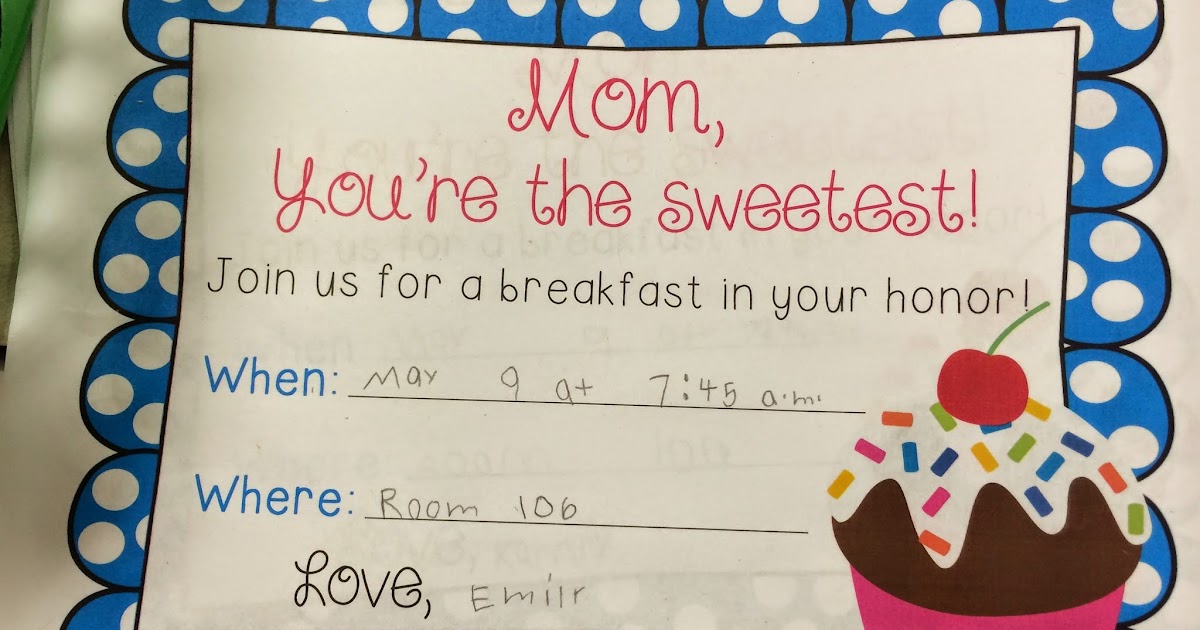 Mom,
You're the sweetest!
Join us for a breakfast in your honor!
When: May 9 at 7:45 a.m.
Where: Room 106
Love, Emily